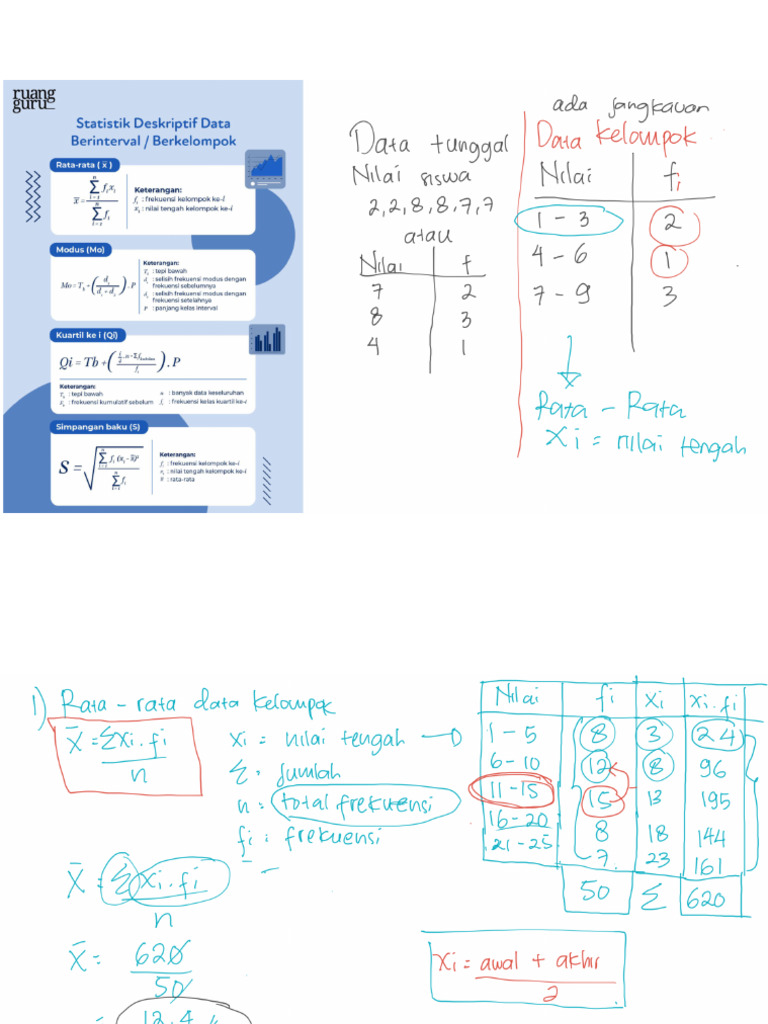 ruang
guru
Statistik Deskriptif Data
Berinterval / Berkelompok
Rata-rata ( x̄ )
Keterangan:
fᵢ : frekuensi kelompok ke-i
xᵢ : nilai tengah kelompok ke-i
Modus (Mo)
Keterangan:
: tepi bawah
: selisih frekuensi modus dengan
frekuensi sebelumnya
: selisih frekuensi modus dengan
frekuensi setelahnya
P : panjang kelas interval
Kuartil ke i (Qi)
Keterangan:
: tepi bawah
n : banyak data keseluruhan
: frekuensi kumulatif sebelum
fᵢ : frekuensi kelas kuartil ke-i
Simpangan baku (S)
Keterangan:
fᵢ : frekuensi kelompok ke-i
: nilai tengah kelompok ke-i
: rata-rata
Data tunggal
Nilai siswa
2,2,8,8,7,7
atau
Nilai f
7 2
8 3
4 1
ada jangkauan
Data Kelompok
Nilai fi
1 - 3 2
4 - 6 1
7 - 9 3
Rata - Rata
Xi = nilai tengah
1) Rata - rata data Kelompok
X̄ = Σxi.fi
n
Xi = nilai tengah
Σ = Jumlah
n = total frekuensi
fi = frekuensi
Nilai fi Xi Xi.fi
1 - 5 8 3 24
6 - 10 12 8 96
11 - 15 15 13 195
16 - 20 8 18 144
21 - 25 7 23 161
50 Σ 620
X̄ = Σ xi.fi
n
X̄ = 620
50
= 12,4
Xi = awal + akhir
2